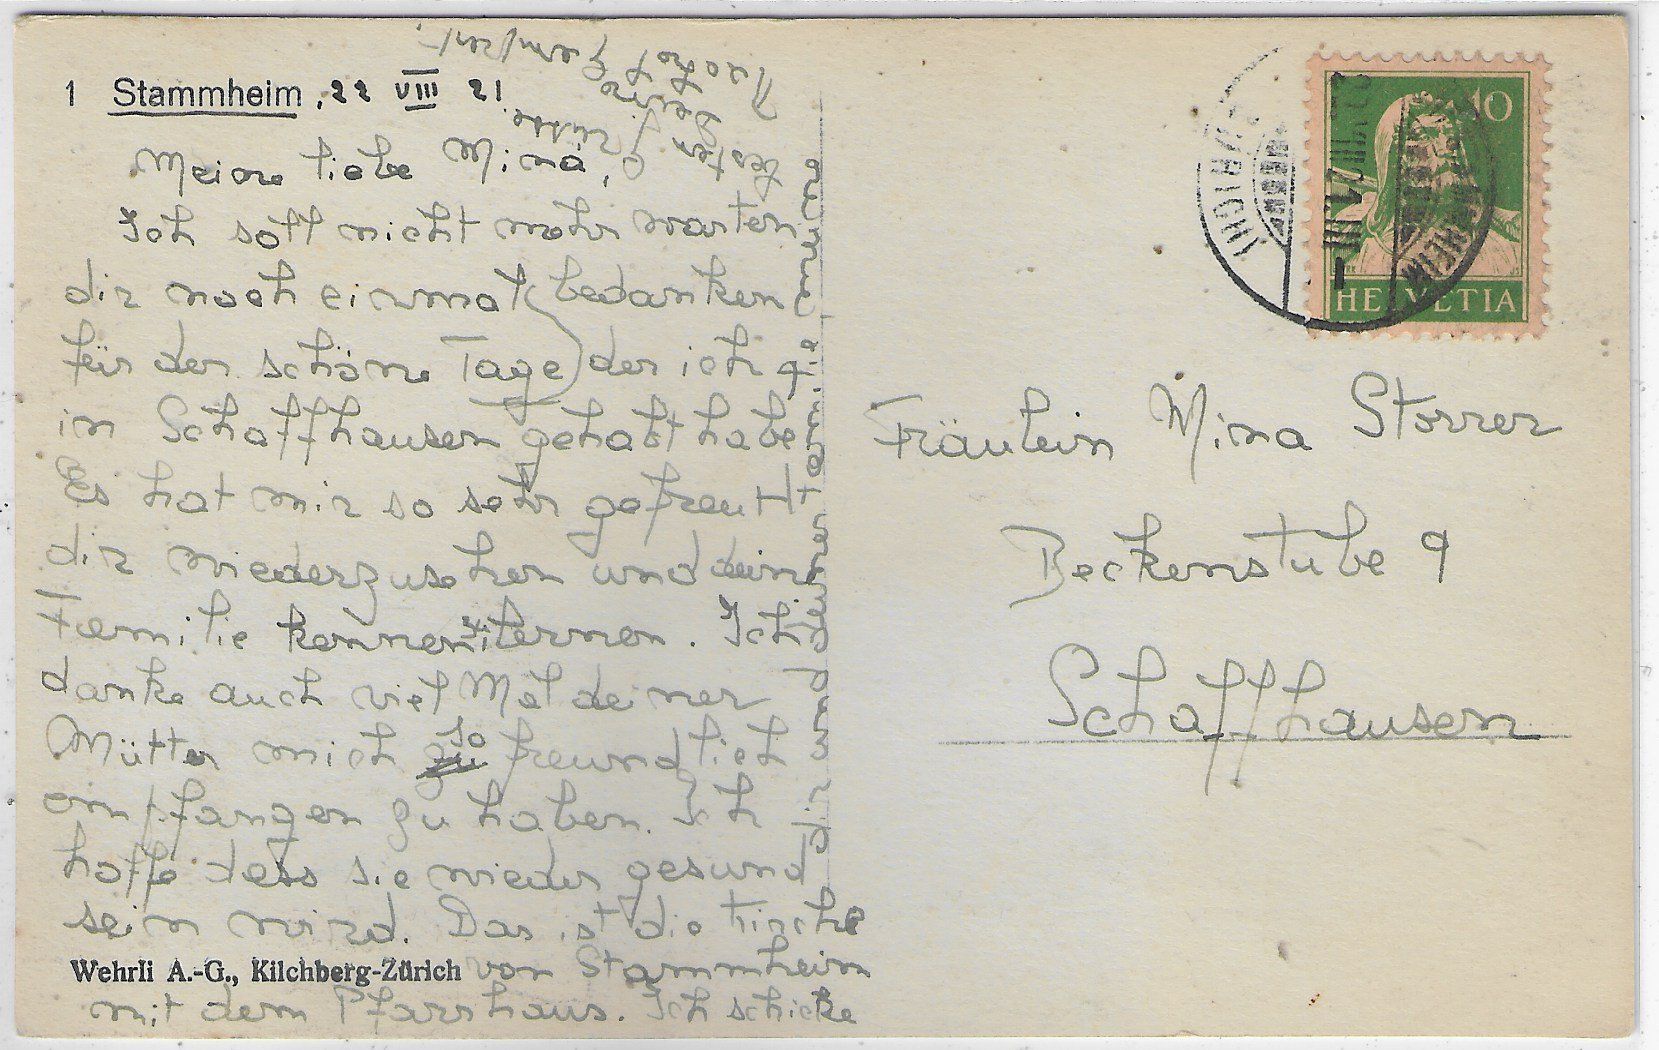 1 Stammheim, 22 VIII 21
Meine liebe Mina,
Ich soll nicht mehr warten
dir noch einmal bedanken
für der schöne Tage der ich
in Schaffhausen gehabt habe
Es hat mir so sehr gefreut
dir wiederzusehen und dein
Familie kennen lernen. Ich
danke auch viel Mal deiner
Mütter mich so freundlich
empfangen zu haben. Ich
hoffe dass sie wieder gesund
sein wird. Das ist die Kirche
von Stammheim
mit dem Pfarrhaus. Ich schicke
dir und deiner Familie
Grüsse
Wehrli A.-G., Kilchberg-Zürich
HELVETIA
10
Fräulein Mina Storrer
Beckenstube 9
Schaffhausen